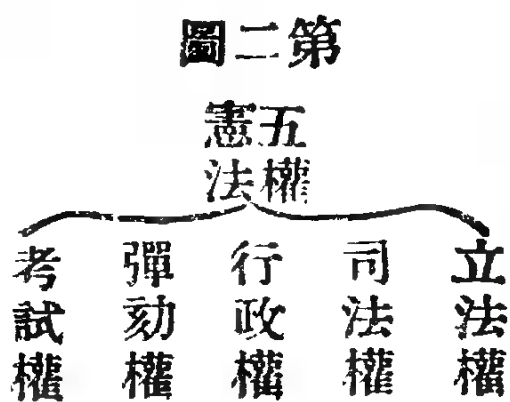 第二圖
五權
憲法
立法權
司法權
行政權
彈劾權
考試權